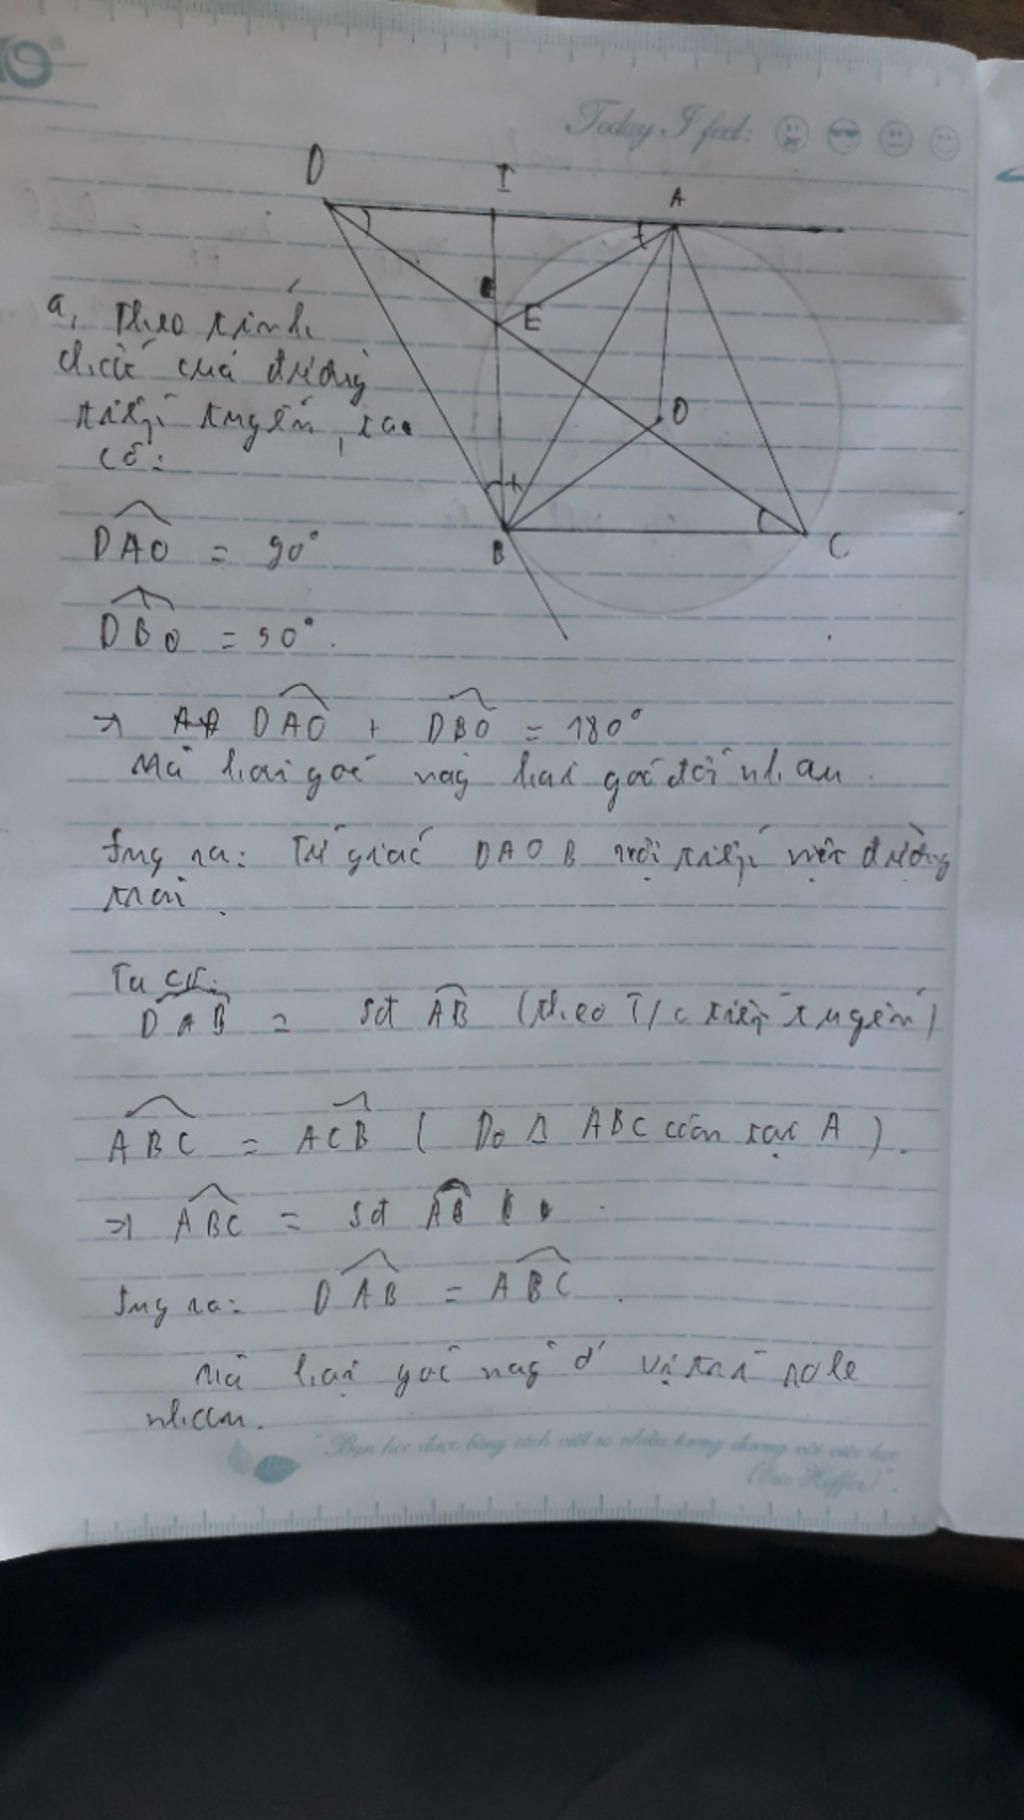 Today I feel:
D I A
E
O
B C
a, Theo tính
chất của đường
tiếp tuyến, ta
có:
DAO = 90°
DBO = 90°.
→ DAO + DBO = 180°
Mà hai góc này hai góc đối nhau.
Suy ra: Tứ giác DAOB nội tiếp một đường
tròn.
Ta có:
DAB = sđ AB (theo T/c tiếp tuyến)
ABC = ACB ( Do Δ ABC cân tại A ).
⇒ ABC = sđ AB
Suy ra: DAB = ABC .
Mà hai góc này ở vị trí sole
nhau.
"Bạn học được bằng cách viết ra nhiều tương đương với việc học
(Eric Hoffer)".